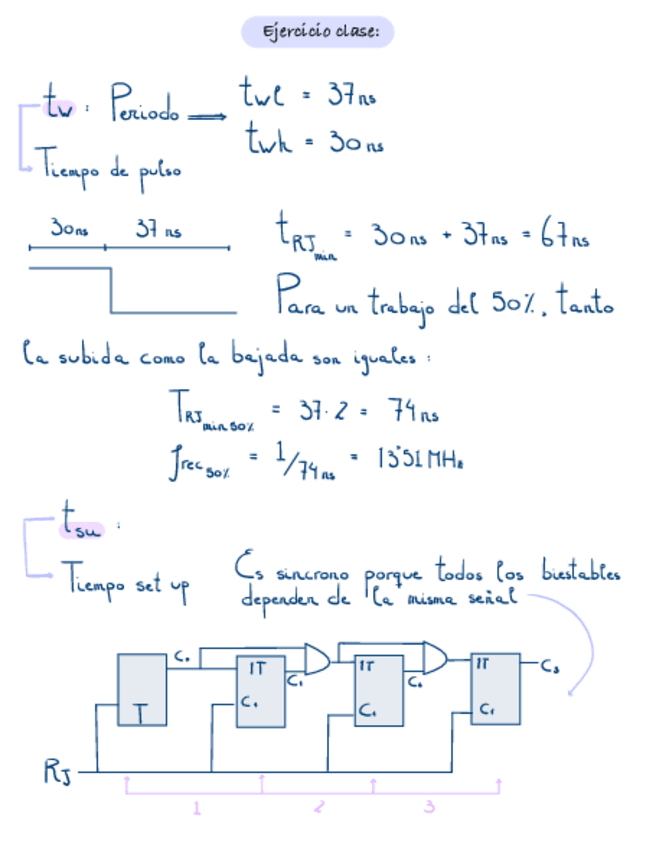 Ejercicio clase:
tw : Periodo → twl = 37 ns
twh = 30 ns
Tiempo de pulso
30 ns 37 ns
tRJ min = 30 ns + 37 ns = 67 ns
Para un trabajo del 50%, tanto
la subida como la bajada son iguales :
TRJ min 50% = 37 · 2 = 74 ns
frec 50% = 1/74 ns = 13'51 MHz
tsu :
Tiempo set up
Es sincrono porque todos los biestables
dependen de la misma señal
1T 1T 1T
T
RJ
1 2 3